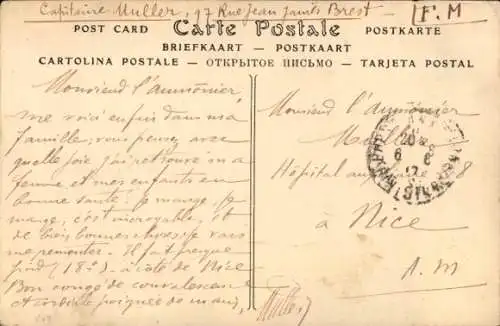 Capitaine Muller, 97 Rue Jean Jaurès Brest
F. M
POST CARD Carte Postale POSTKARTE
BRIEFKAART — POSTKAART
CARTOLINA POSTALE — ОТКРЫТОЕ ПИСЬМО — TARJETA POSTAL
Monsieur l'aumônier
me voici enfin dans ma
famille; vous pensez avec
quelle joie j'ai retrouvé ma
femme et mes enfants en
bonne santé; je mange, je
mange, c'est incroyable, et
de bien bonnes choses, je vais
me remonter. Il fait presque
froid (18°) à côté de Nice
Bon congé de convalescence
et cordiale poignée de main,
Muller
Monsieur l'aumônier
Hôpital 8
à Nice
A. M